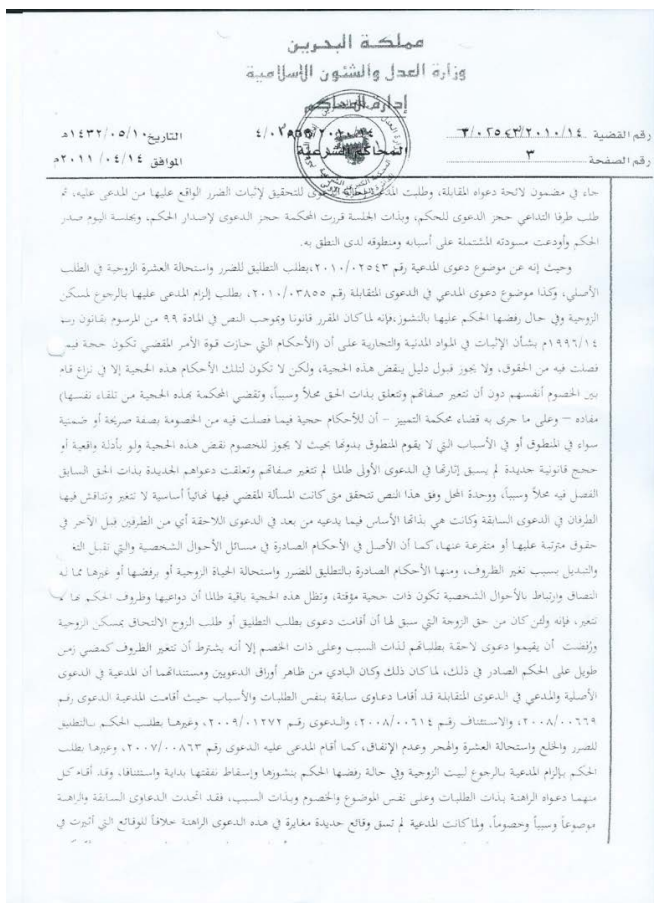 مملكة البحرين
وزارة العدل والشئون الاسلامية
إدارة المحاكم
المحاكم الشرعية
رقم القضية ٣/٠٢٥٤٣/٢٠١٠/١٤
التاريخ ١٤٣٢/٠٥/١٠هـ
رقم الصفحة ٣
الموافق ٢٠١١/٠٤/١٤م
جاء في مضمون لائحة دعواه المقابلة، وطلبت المدعية إحالة الدعوى للتحقيق لإثبات الضرر الواقع عليها من المدعى عليه، ثم
طلب طرفا التداعي حجز الدعوى للحكم، وبذات الجلسة قررت المحكمة حجز الدعوى لإصدار الحكم، وبجلسة اليوم صدر
الحكم وأودعت مسودته المشتملة على أسبابه ومنطوقه لدى النطق به.
وحيث إنه عن موضوع دعوى المدعية رقم ٢٠١٠/٠٢٥٤٣، بطلب التطليق للضرر واستحالة العشرة الزوجية في الطلب
الأصلي، وكذا موضوع دعوى المدعي في الدعوى المتقابلة رقم ٢٠١٠/٠٣٨٥٥، بطلب إلزام المدعى عليها بالرجوع لمسكن
الزوجية وفي حال رفضها الحكم عليها بالنشوز، فإنه لما كان المقرر قانونا وبموجب النص في المادة ٩٩ من المرسوم بقانون رقم
١٩٩٦/١٤م بشأن الإثبات في المواد المدنية والتجارية على أن (الأحكام التي حازت قوة الأمر المقضي تكون حجة فيما
فصلت فيه من الحقوق، ولا يجوز قبول دليل ينقض هذه الحجية، ولكن لا تكون لتلك الأحكام هذه الحجية إلا في نزاع قام
بين الخصوم أنفسهم دون أن تتغير صفاتهم وتتعلق بذات الحق محلاً وسبباً، وتقضي المحكمة بهذه الحجية من تلقاء نفسها)
مفاده – وعلى ما جرى به قضاء محكمة التمييز – أن للأحكام حجية فيما فصلت فيه من الخصومة بصفة صريحة أو ضمنية
سواء في المنطوق أو في الأسباب التي لا يقوم المنطوق بدونها بحيث لا يجوز للخصوم نقض هذه الحجية ولو بأدلة واقعية أو
حجج قانونية جديدة لم يسبق إثارتها في الدعوى الأولى طالما لم تتغير صفاتهم وتعلقت دعواهم الجديدة بذات الحق السابق
الفصل فيه محلاً وسبباً، ووحدة المحل وفق هذا النص تتحقق متى كانت المسألة المقضي فيها نهائياً أساسية لا تتغير وتناقش فيها
الطرفان في الدعوى السابقة وكانت هي بذاتها الأساس فيما يدعيه من بعد في الدعوى اللاحقة أي من الطرفين قبل الآخر في
حقوق مترتبة عليها أو متفرعة عنها، كما أن الأصل في الأحكام الصادرة في مسائل الأحوال الشخصية والتي تقبل التغ
والتبديل بسبب تغير الظروف، ومنها الأحكام الصادرة بالتطليق للضرر واستحالة الحياة الزوجية أو برفضها أو غيرها مما له
التصاق وارتباط بالأحوال الشخصية تكون ذات حجية مؤقتة، وتظل هذه الحجية باقية طالما أن دواعيها وظروف الحكم بها لم
تتغير، فإنه ولئن كان من حق الزوجة التي سبق لها أن أقامت دعوى بطلب التطليق أو طلب الزوج الالتحاق بمسكن الزوجية
ورُفضت أن يقيموا دعوى لاحقة بطلباتهم لذات السبب وعلى ذات الخصم إلا أنه يشترط أن تتغير الظروف كمضي زمن
طويل على الحكم الصادر في ذلك، لما كان ذلك وكان البادي من ظاهر أوراق الدعويين ومستنداتهما أن المدعية في الدعوى
الأصلية والمدعي في الدعوى المتقابلة قد أقاما دعاوى سابقة بنفس الطلبات والأسباب حيث أقامت المدعية الدعوى رقم
٢٠٠٨/٠٠٦٦٩، والاستئناف رقم ٢٠٠٨/٠٠٦١٤، والدعوى رقم ٢٠٠٩/٠١٢٧٢، وغيرها بطلب الحكم بالتطليق
للضرر والخلع واستحالة العشرة والهجر وعدم الإنفاق، كما أقام المدعى عليه الدعوى رقم ٢٠٠٧/٠٠٨٦٣، وغيرها بطلب
الحكم بإلزام المدعية بالرجوع لبيت الزوجية وفي حالة رفضها الحكم بنشوزها وإسقاط نفقتها بداية واستئنافا، وقد أقام كل
منهما دعواه الراهنة بذات الطلبات وعلى نفس الموضوع والخصوم وبذات السبب، فقد اتحدت الدعاوى السابقة والراهنة
موضوعاً وسبباً وخصوماً. ولما كانت المدعية لم تسق وقائع جديدة مغايرة في هذه الدعوى الراهنة خلافاً للوقائع التي أثيرت في